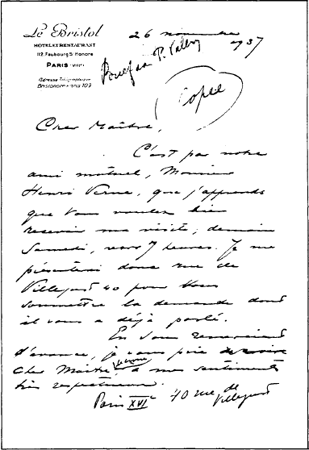 Le Bristol
112, Faubourg St Honoré
PARIS (VIIIe)
Adresse Télégraphique
26 novembre
1937
Pour P. Valéry
Copie
Cher Maître,
C'est par notre
ami mutuel, Monsieur
Henri Verne, que j'apprends
que Vous voulez bien
recevoir ma visite, demain
Samedi, vers 7 heures. Je me
présenterai donc rue de
Villejust 40 pour Vous
soumettre la demande dont
il vous a déjà parlé.
En Vous remerciant
d'avance, je vous prie de croire
Cher Maître à mes sentiments
très respectueux.
Paris XVIe 40 rue de
Villejust